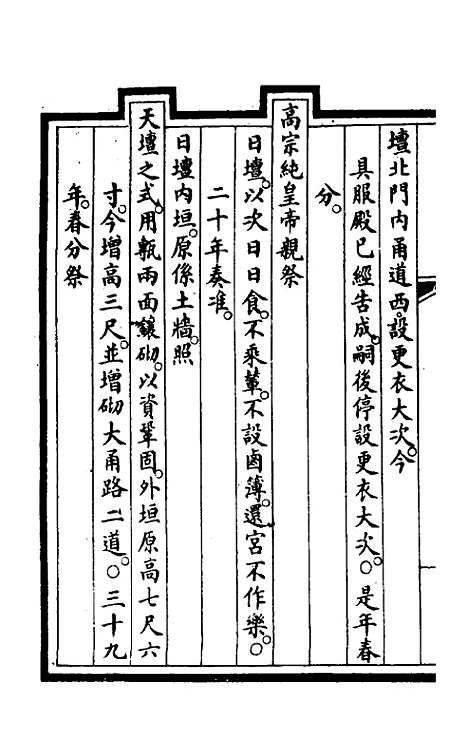 壇北門內甬道西。設更衣大次。今
具服殿已經告成。嗣後停設更衣大次。○是年春
分。
高宗純皇帝親祭
日壇。以次日日食。不乘輦。不設鹵簿。還宮不作樂。○
二十年奏准。
日壇內垣。原係土牆。照
天壇之式。用甎兩面鑲砌。以資鞏固。外垣原高七尺六
寸。今增高三尺。並增砌大甬路二道。○三十九
年。春分祭